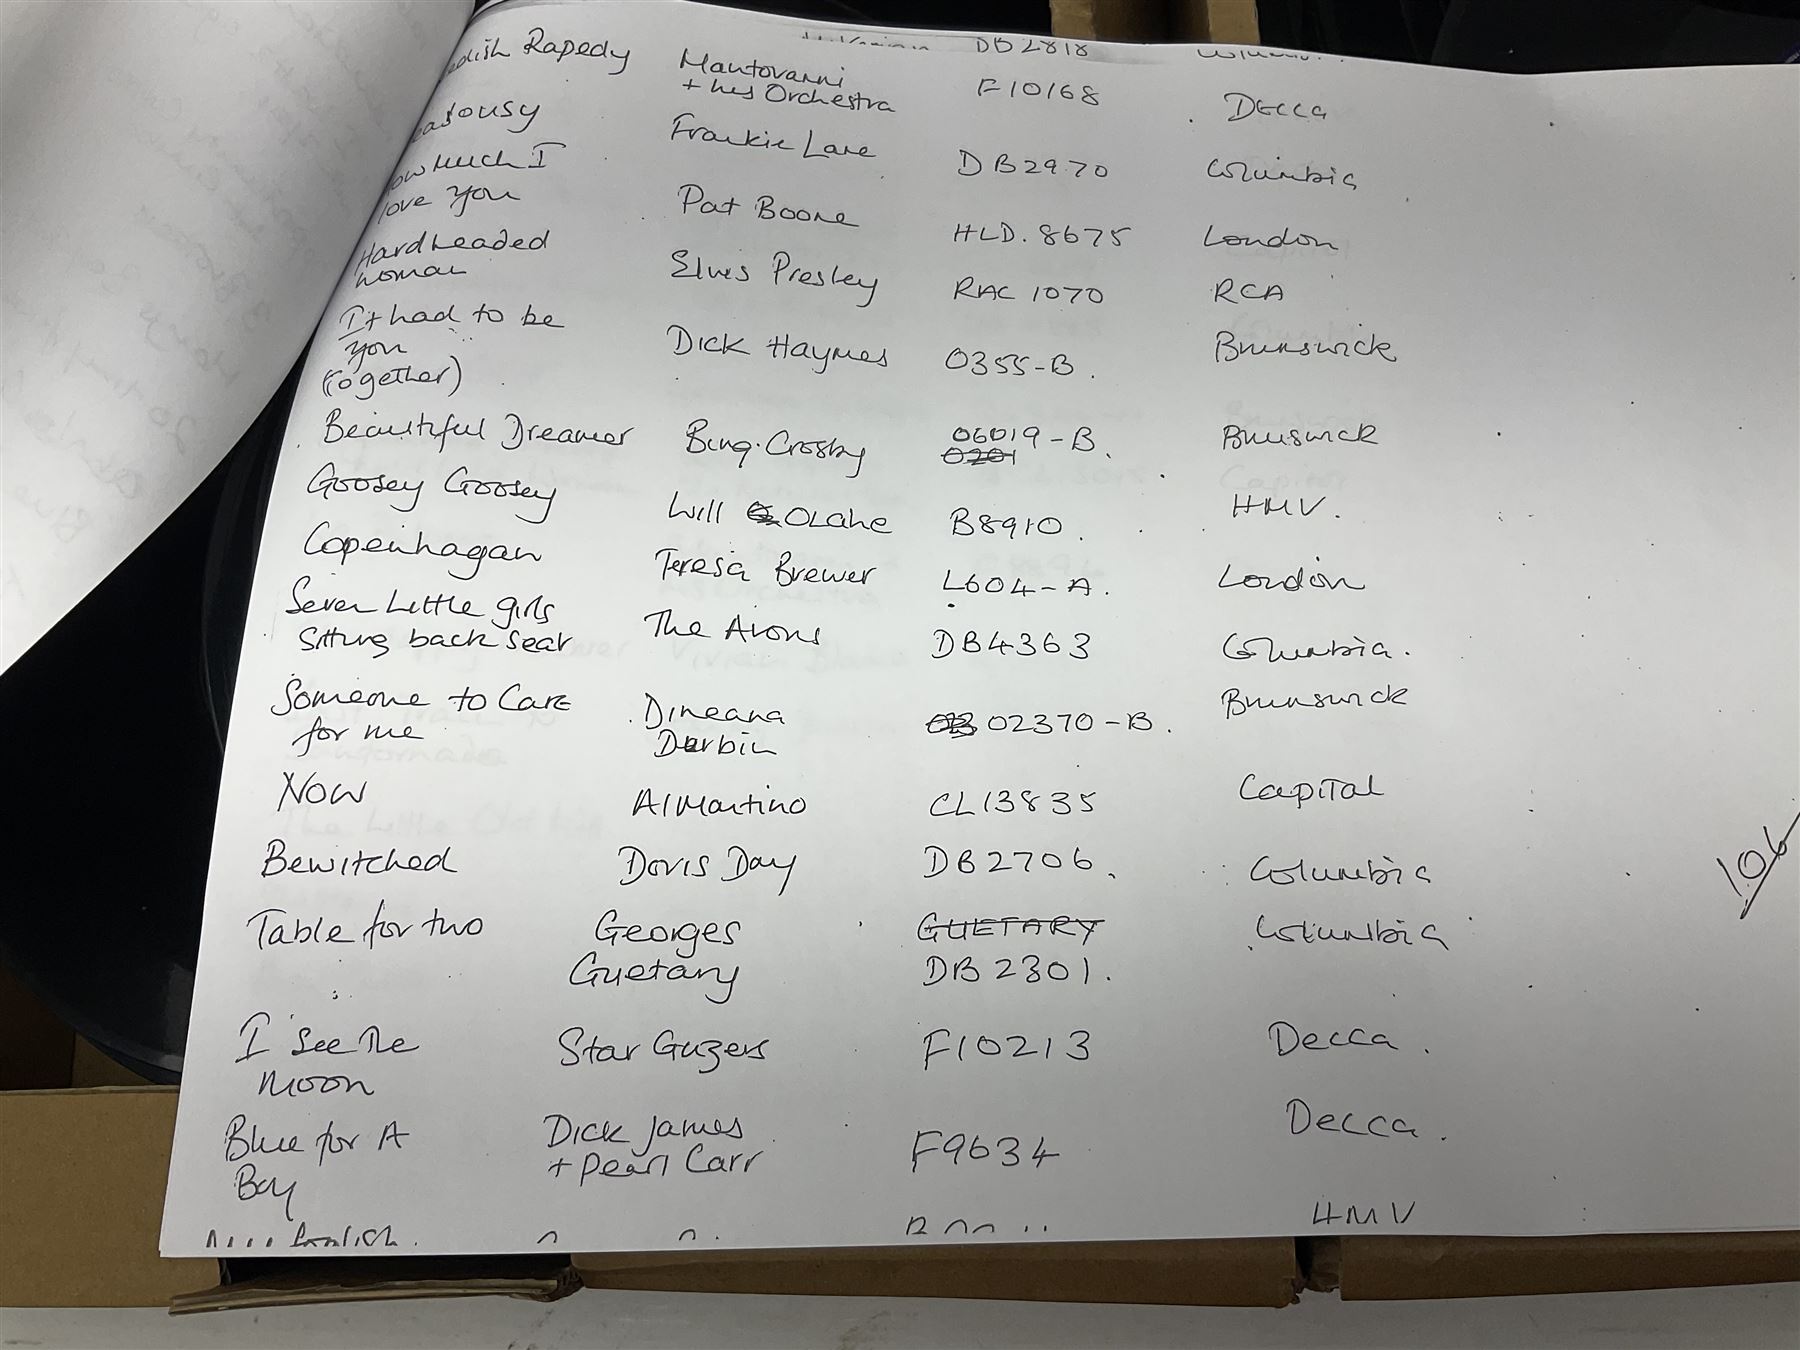 DB2818
edish Rapedy Mantovanni F10168 DECCA
+ his Orchestra
ealousy Frankie Lane DB2970 Columbia
ow much I Pat Boone HLD.8675 London
love you
Hardheaded Elvis Presley RAC 1070 RCA
woman
It had to be Dick Haymes 0355-B. Brunswick
you
(Together)
Beautiful Dreamer Bing.Crosby 06019-B. Brunswick
0201
Goosey Goosey Will OLahe B8910. HMV.
Copenhagan Teresa Brewer L604-A. London
Seven Little girls The Avons DB4363 Columbia.
Sitting back seat
Someone to Care Dineana 02370-B. Brunswick
for me Durbin
Now Al Martino CL13835 Capital
Bewitched Doris Day DB2706. Columbia
Table for two Georges GUETARY Columbia
Guetary DB2301.
I See The Star Gazers F10213 Decca.
moon
Blue for A Dick James F9634 Decca.
Boy + Pearl Carr
HMV
106